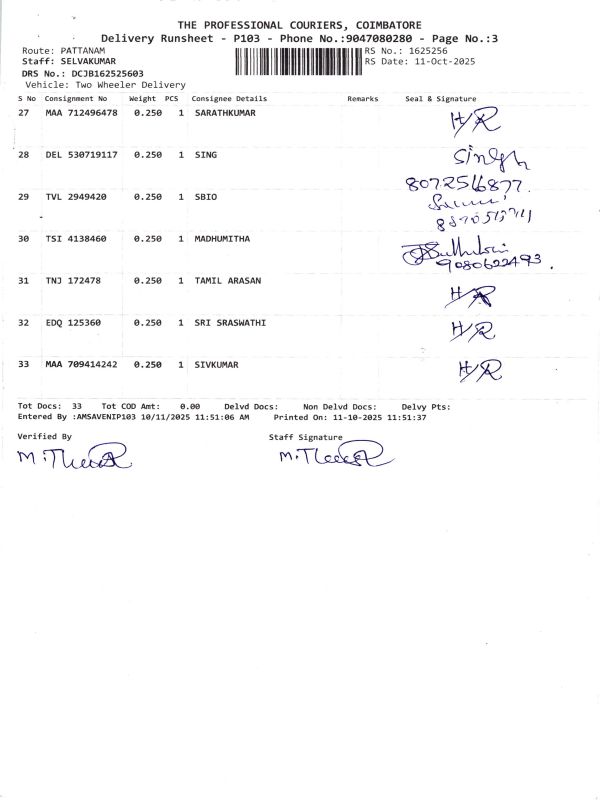 THE PROFESSIONAL COURIERS, COIMBATORE
Delivery Runsheet - P103 - Phone No.:9047080280 - Page No.:3
Route: PATTANAM RS No.: 1625256
Staff: SELVAKUMAR RS Date: 11-Oct-2025
DRS No.: DCJB162525603
Vehicle: Two Wheeler Delivery
S No Consignment No Weight PCS Consignee Details Remarks Seal & Signature
27 MAA 712496478 0.250 1 SARATHKUMAR H/R
28 DEL 530719117 0.250 1 SING Singh
8072516877.
29 TVL 2949420 0.250 1 SBIO
30 TSI 4138460 0.250 1 MADHUMITHA
9080622493.
31 TNJ 172478 0.250 1 TAMIL ARASAN H/R
32 EDQ 125360 0.250 1 SRI SRASWATHI H/R
33 MAA 709414242 0.250 1 SIVKUMAR H/R
Tot Docs: 33 Tot COD Amt: 0.00 Delvd Docs: Non Delvd Docs: Delvy Pts:
Entered By :AMSAVENIP103 10/11/2025 11:51:06 AM Printed On: 11-10-2025 11:51:37
Verified By Staff Signature